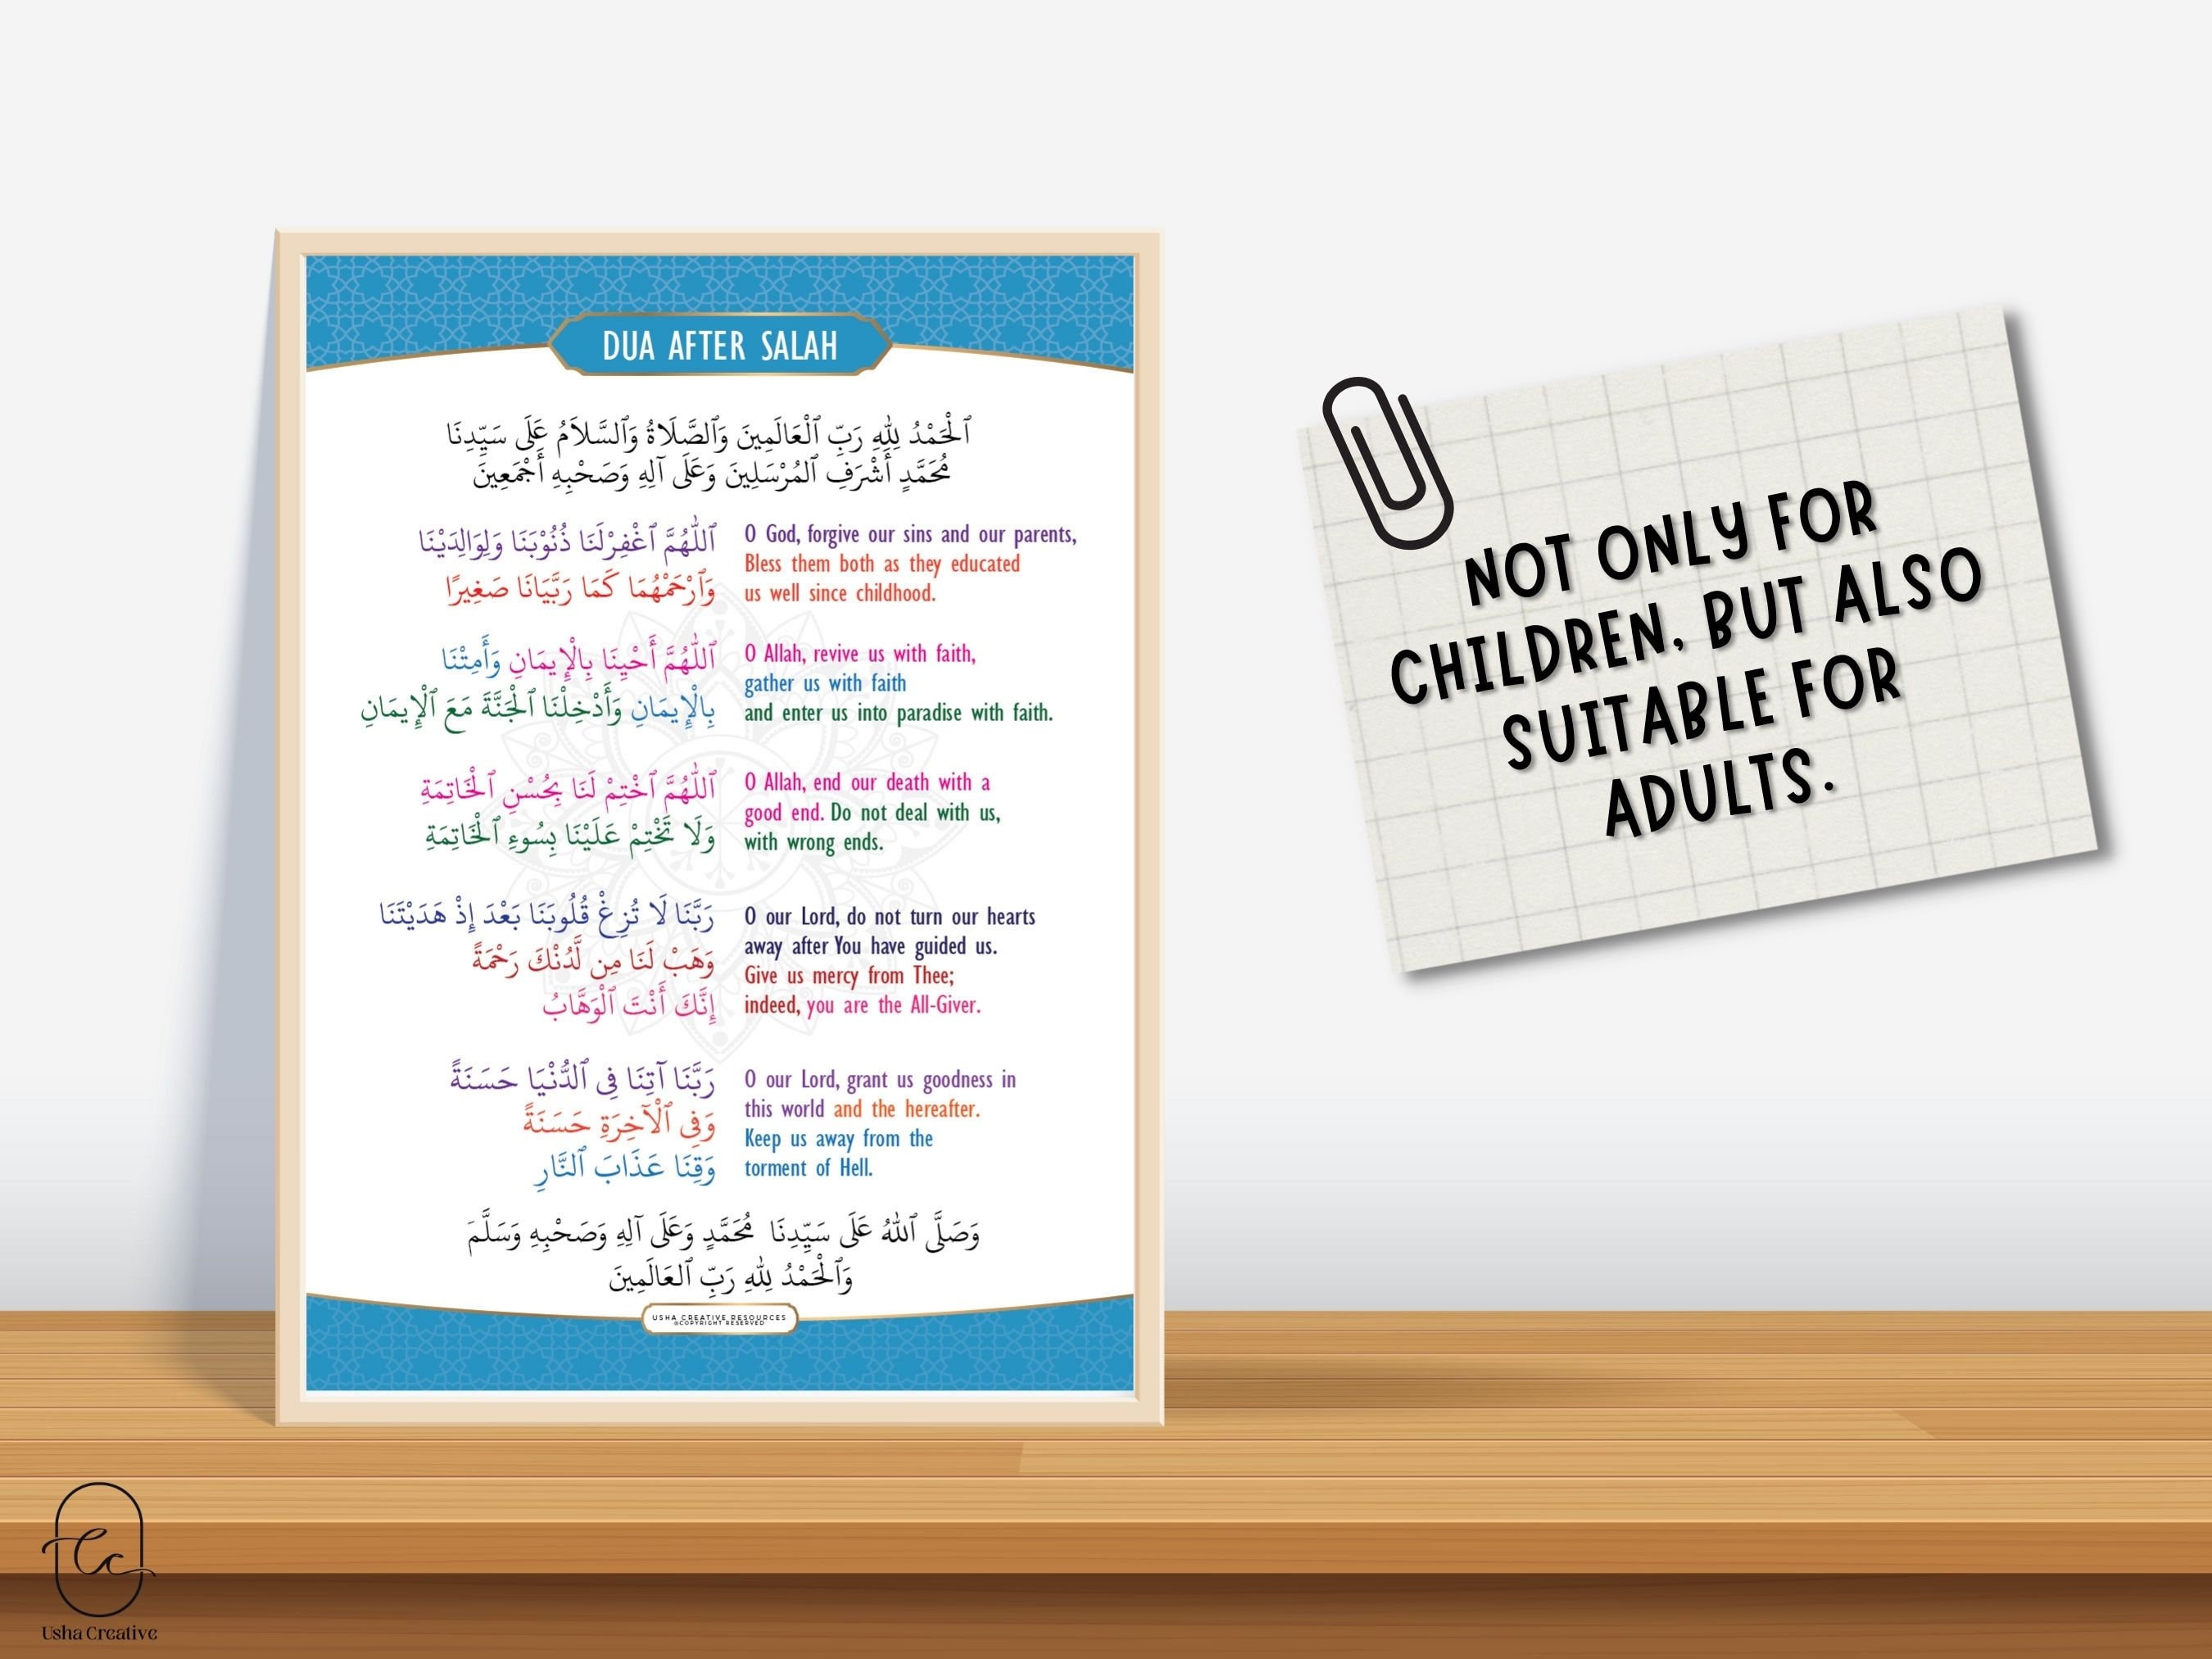 DUA AFTER SALAH
ٱلْحَمْدُ لِلّٰهِ رَبِّ ٱلْعَالَمِينَ وَٱلصَّلَاةُ وَٱلسَّلَامُ عَلَى سَيِّدِنَا
مُحَمَّدٍ أَشْرَفِ ٱلمُرْسَلِينَ وَعَلَى آلِهِ وَصَحْبِهِ أَجْمَعِينَ
ٱللّٰهُمَّ ٱغْفِرْلَنَا ذُنُوْبَنَا وَلِوَالِدَيْنَا
وَٱرْحَمْهُمَا كَمَا رَبَّيَانَا صَغِيرًا
O God, forgive our sins and our parents,
Bless them both as they educated
us well since childhood.
ٱللّٰهُمَّ أَحْيِنَا بِالْإِيمَانِ وَأَمِتْنَا
بِالْإِيمَانِ وَأَدْخِلْنَا ٱلْجَنَّةَ مَعَ ٱلْإِيمَانِ
O Allah, revive us with faith,
gather us with faith
and enter us into paradise with faith.
ٱللّٰهُمَّ ٱخْتِمْ لَنَا بِحُسْنِ ٱلْخَاتِمَةِ
وَلَا تَخْتِمْ عَلَيْنَا بِسُوءِ ٱلْخَاتِمَةِ
O Allah, end our death with a
good end. Do not deal with us,
with wrong ends.
رَبَّنَا لَا تُزِغْ قُلُوبَنَا بَعْدَ إِذْ هَدَيْتَنَا
وَهَبْ لَنَا مِن لَّدُنْكَ رَحْمَةً
إِنَّكَ أَنْتَ ٱلْوَهَّابُ
O our Lord, do not turn our hearts
away after You have guided us.
Give us mercy from Thee;
indeed, you are the All-Giver.
رَبَّنَا آتِنَا فِي ٱلدُّنْيَا حَسَنَةً
وَفِي ٱلْآخِرَةِ حَسَنَةً
وَقِنَا عَذَابَ ٱلنَّارِ
O our Lord, grant us goodness in
this world and the hereafter.
Keep us away from the
torment of Hell.
وَصَلَّى ٱللّٰهُ عَلَى سَيِّدِنَا مُحَمَّدٍ وَعَلَى آلِهِ وَصَحْبِهِ وَسَلَّمَ
وَٱلْحَمْدُ لِلّٰهِ رَبِّ ٱلعَالَمِينَ
USHA CREATIVE RESOURCES
©COPYRIGHT RESERVED
NOT ONLY FOR
CHILDREN, BUT ALSO
SUITABLE FOR
ADULTS.
Cc
Usha Creative